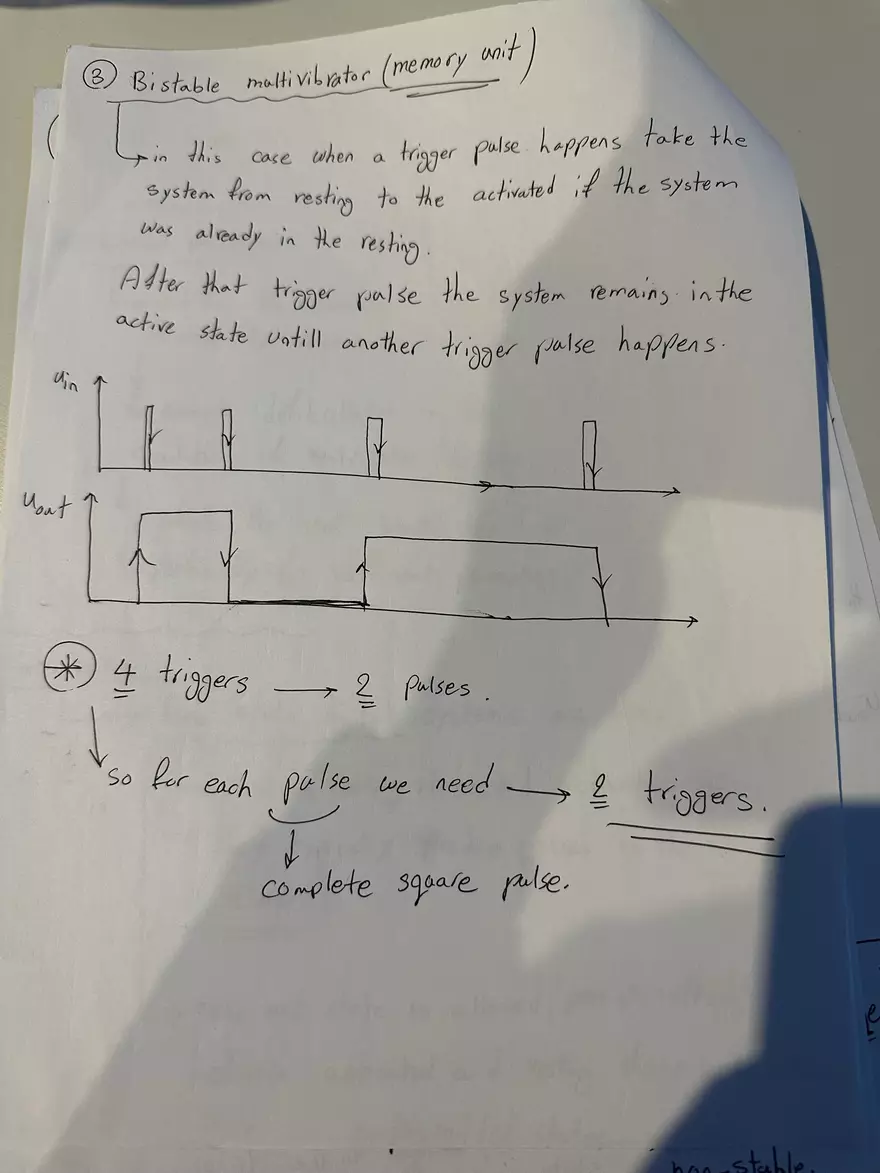 ③ Bistable multivibrator (memory unit)
in this case when a trigger pulse happens take the
system from resting to the activated if the system
was already in the resting.
After that trigger pulse the system remains in the
active state untill another trigger pulse happens.
uin
uout
* 4 triggers → 2 pulses.
so for each pulse we need → 2 triggers.
complete square pulse.